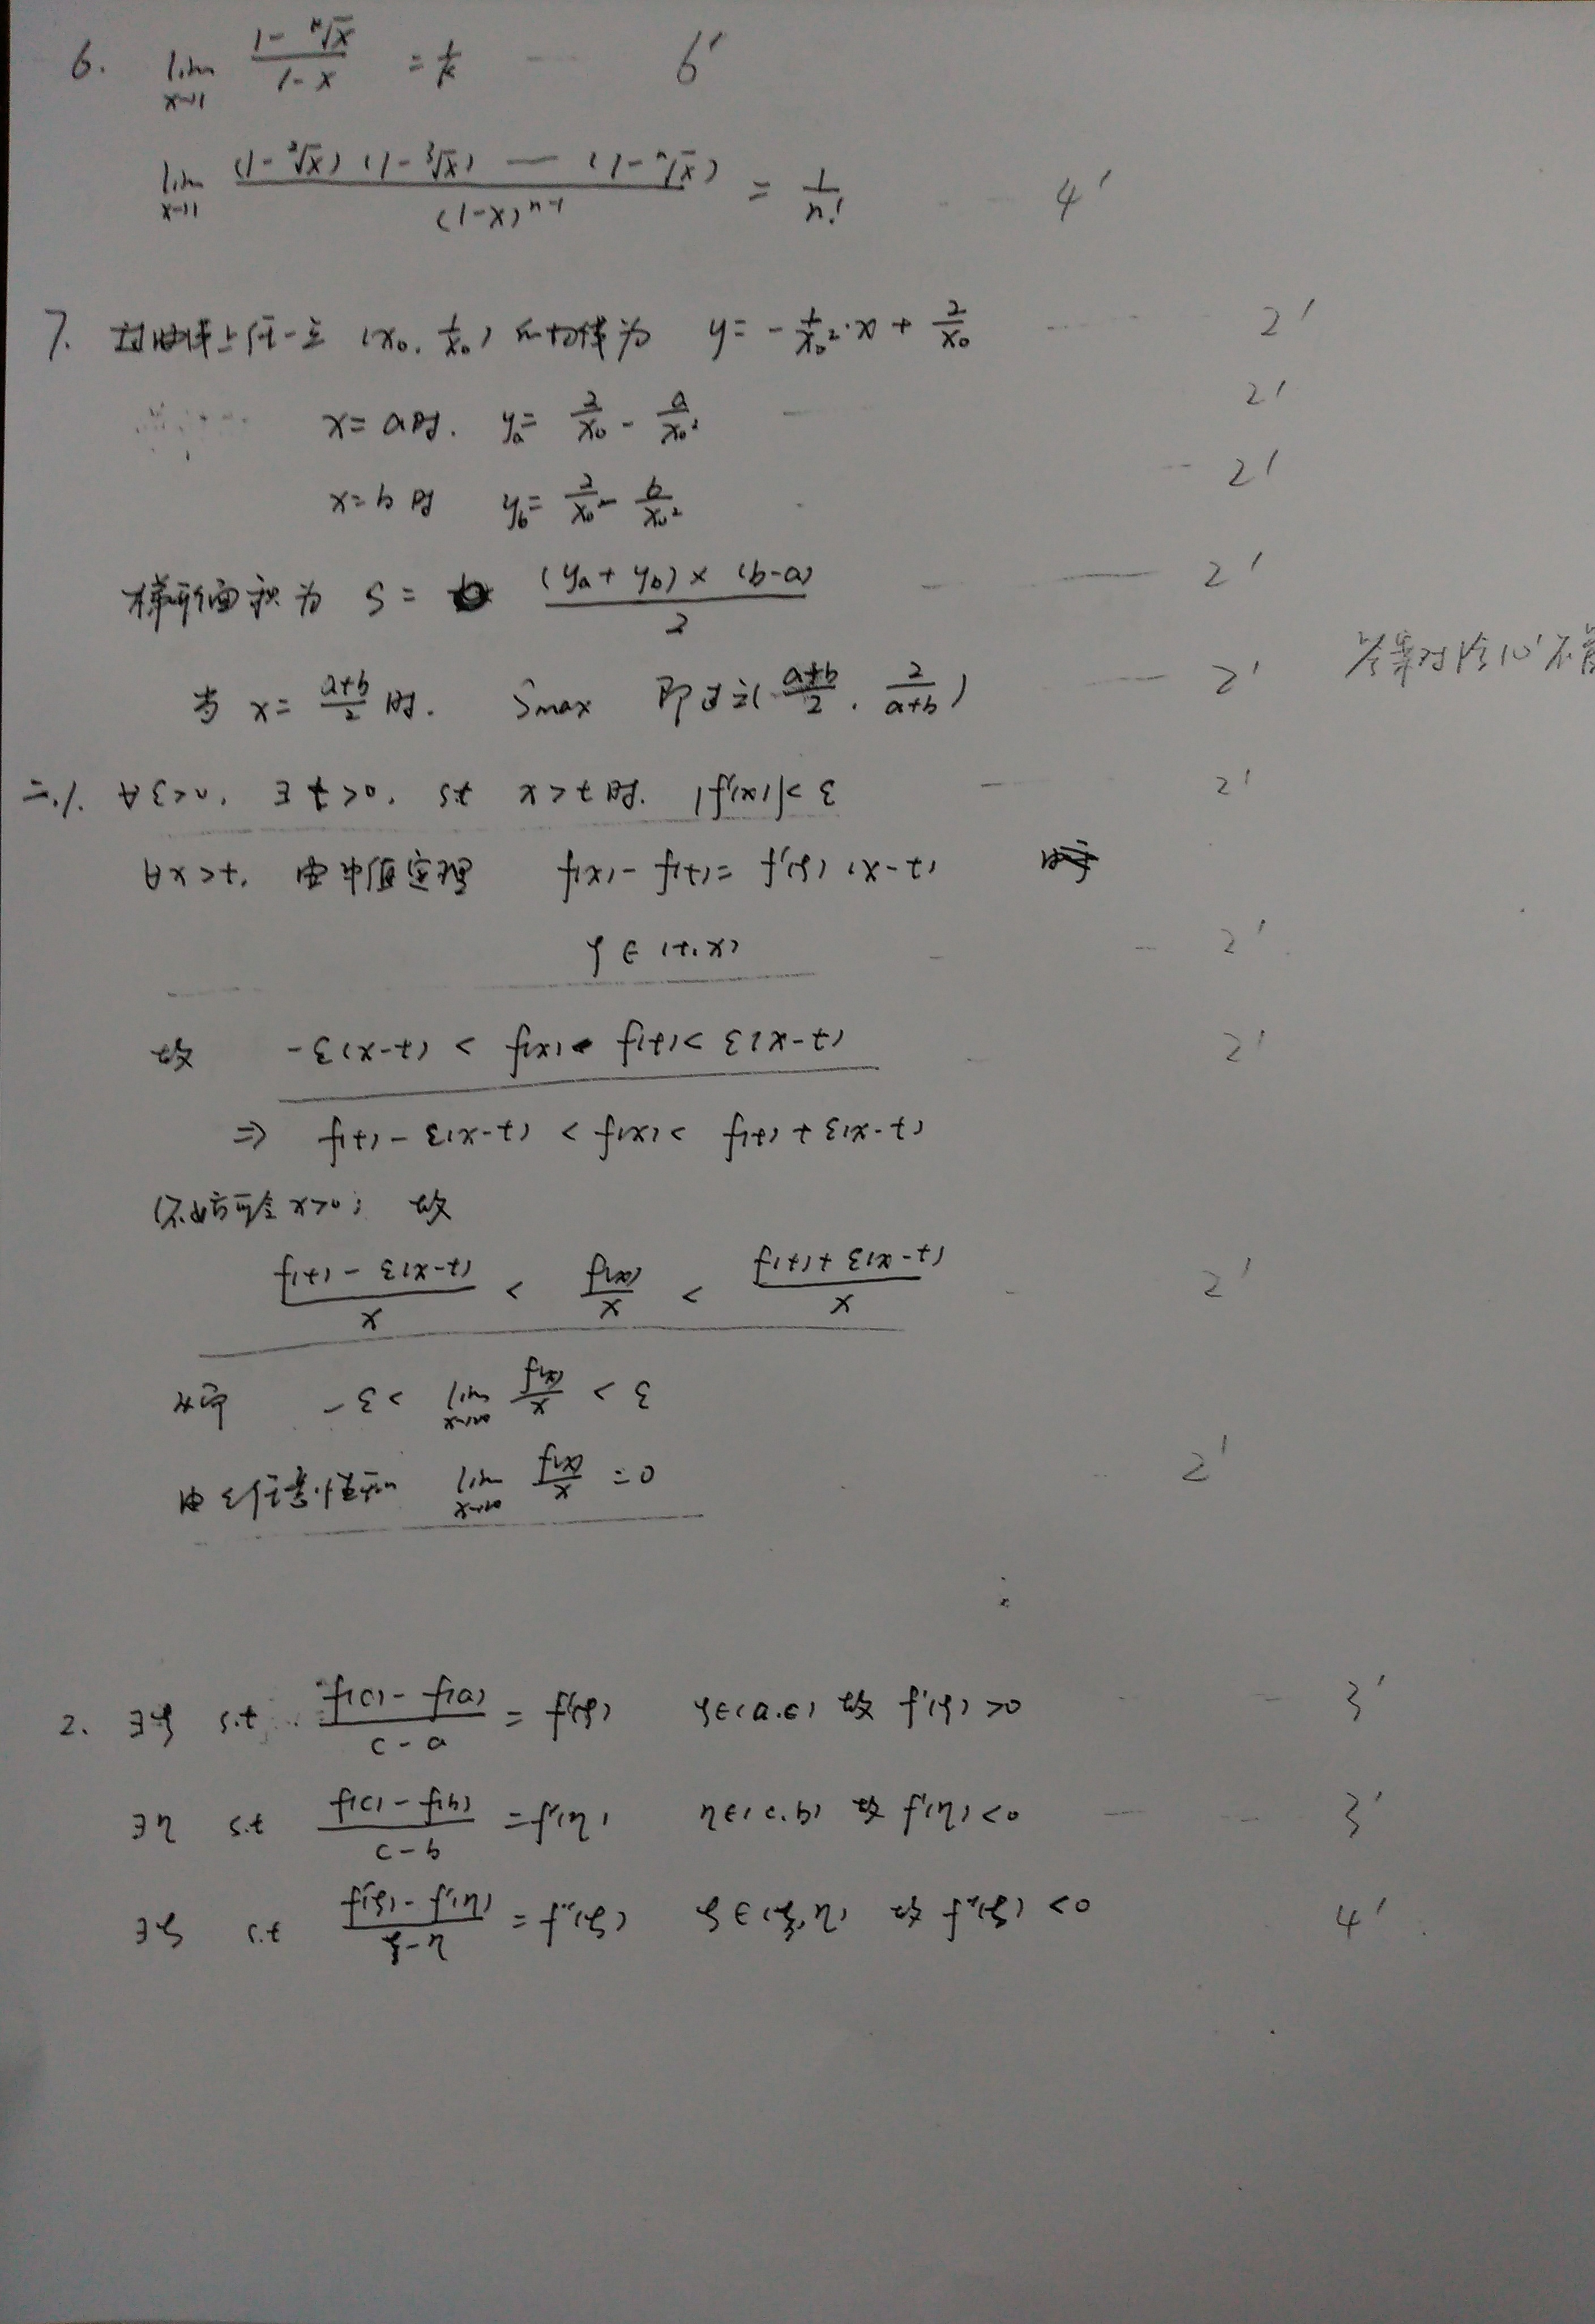 6. lim x→1 (1-ᵏ√x)/(1-x) = 1/k 6'
lim x→1 (1-²√x)(1-³√x) — (1-ⁿ√x) / (1-x)ⁿ⁻¹ = 1/n! 4'
7. 过曲线上任一点 (x₀, 1/x₀) 的切线为 y = -1/x₀²·x + 2/x₀ 2'
x=a时. yₐ= 2/x₀ - a/x₀² 2'
x=b时 y_b= 2/x₀ - b/x₀² 2'
梯形面积为 S = (yₐ+y_b)×(b-a) / 2 2'
当 x = (a+b)/2 时. Smax 即过点((a+b)/2, 2/(a+b)) 2' 答案对给10'不管
二.1. ∀ε>0, ∃t>0, st x>t时. |f'(x)|<ε 2'
∀x>t, 由中值定理 f(x)-f(t)=f'(ξ)(x-t)
ξ∈(t,x) 2'
故 -ε(x-t) < f(x)-f(t)< ε(x-t) 2'
⇒ f(t)-ε(x-t) < f(x)< f(t)+ε(x-t)
(不妨可令x>0) 故
(f(t)-ε(x-t))/x < f(x)/x < (f(t)+ε(x-t))/x 2'
-ε< lim x→∞ f(x)/x < ε
由ε任意性知 lim x→∞ f(x)/x =0 2'
2. ∃ξ s.t (f(c)-f(a))/(c-a) = f'(ξ) ξ∈(a.c) 故 f'(ξ)>0 3'
∃η s.t (f(c)-f(b))/(c-b) =f'(η) η∈(c.b) 故 f'(η)<0 3'
∃ζ s.t (f'(ξ)-f'(η))/(ξ-η) = f''(ζ) ζ∈(ξ,η) 故 f''(ζ)<0 4'